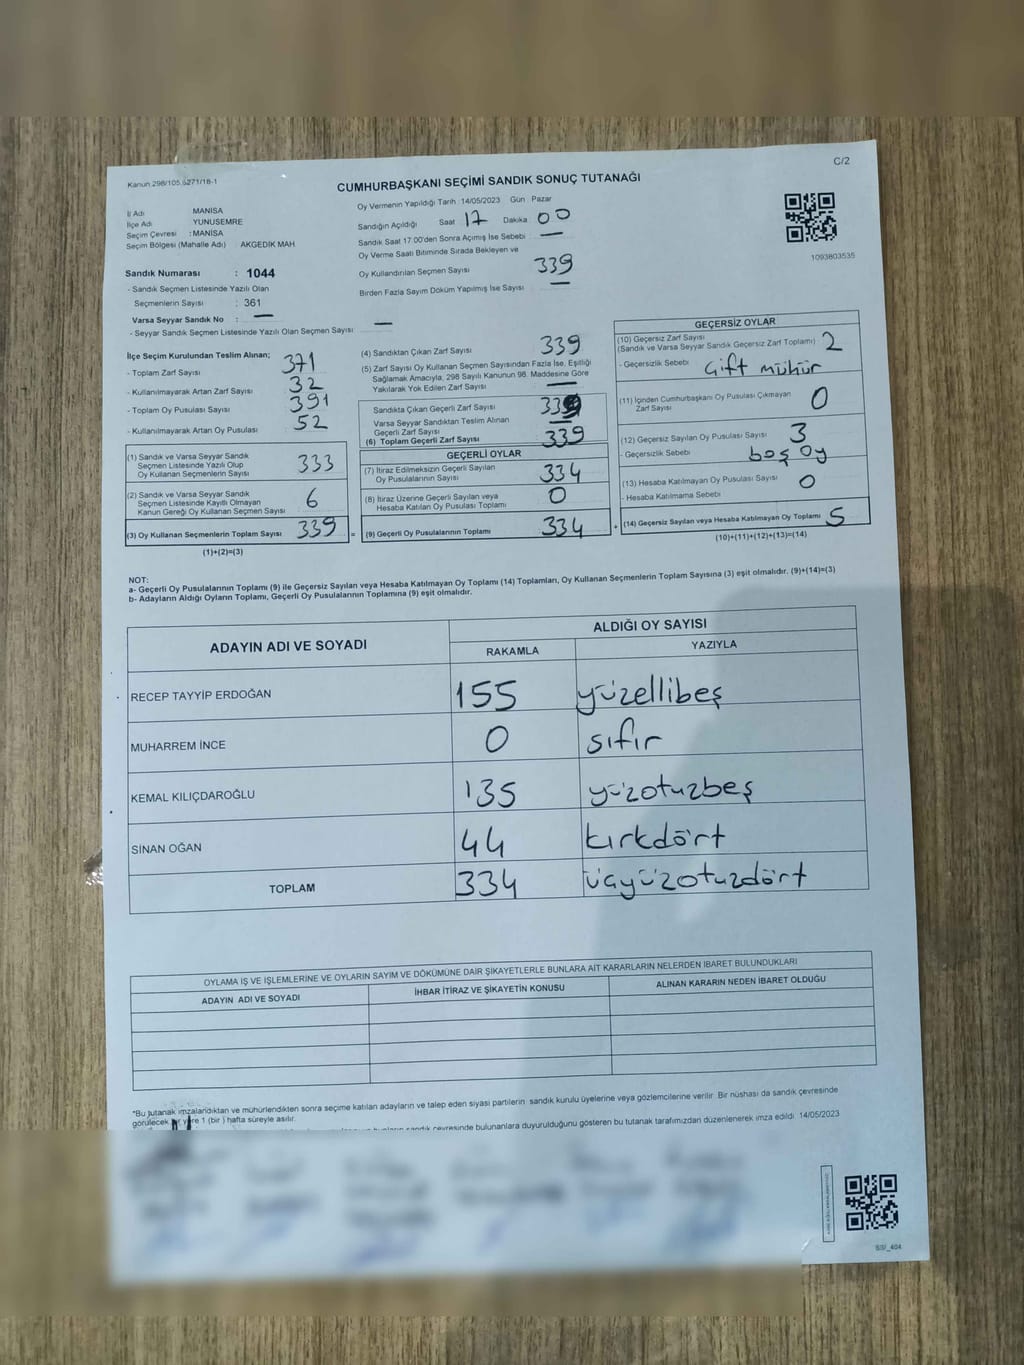 C/2
Kanun:298/105,6271/18-1
CUMHURBAŞKANI SEÇİMİ SANDIK SONUÇ TUTANAĞI
İl Adı MANİSA
İlçe Adı YUNUSEMRE
Seçim Çevresi : MANİSA
Seçim Bölgesi (Mahalle Adı) AKGEDİK MAH
Sandık Numarası : 1044
- Sandık Seçmen Listesinde Yazılı Olan
Seçmenlerin Sayısı : 361
Varsa Seyyar Sandık No : —
- Seyyar Sandık Seçmen Listesinde Yazılı Olan Seçmen Sayısı : —
Oy Vermenin Yapıldığı Tarih :14/05/2023 Gün : Pazar
Sandığın Açıldığı Saat 17 Dakika 00
Sandık Saat 17:00'den Sonra Açımış İse Sebebi : —
Oy Verme Saati Bitiminde Sırada Bekleyen ve
Oy Kullandırılan Seçmen Sayısı 339
Birden Fazla Sayım Döküm Yapılmış İse Sayısı : —
1093803535
İlçe Seçim Kurulundan Teslim Alınan;
- Toplam Zarf Sayısı : 371
- Kullanılmayarak Artan Zarf Sayısı : 32
- Toplam Oy Pusulası Sayısı : 391
- Kullanılmayarak Artan Oy Pusulası : 52
(1) Sandık ve Varsa Seyyar Sandık
Seçmen Listesinde Yazılı Olup
Oy Kullanan Seçmenlerin Sayısı 333
(2) Sandık ve Varsa Seyyar Sandık
Seçmen Listesinde Kayıtlı Olmayan
Kanun Gereği Oy Kullanan Seçmen Sayısı 6
(3) Oy Kullanan Seçmenlerin Toplam Sayısı 339
(1)+(2)=(3)
=
(4) Sandıktan Çıkan Zarf Sayısı : 339
(5) Zarf Sayısı Oy Kullanan Seçmen Sayısından Fazla İse, Eşitliği
Sağlamak Amacıyla, 298 Sayılı Kanunun 98. Maddesine Göre
Yakılarak Yok Edilen Zarf Sayısı : —
Sandıkta Çıkan Geçerli Zarf Sayısı : 339
Varsa Seyyar Sandıktan Teslim Alınan
Geçerli Zarf Sayısı : —
(6) Toplam Geçerli Zarf Sayısı : 339
GEÇERLİ OYLAR
(7) İtiraz Edilmeksizin Geçerli Sayılan
Oy Pusulalarının Sayısı 334
(8) İtiraz Üzerine Geçerli Sayılan veya
Hesaba Katılan Oy Pusulası Toplamı 0
(9) Geçerli Oy Pusulalarının Toplamı 334
+
GEÇERSİZ OYLAR
(10) Geçersiz Zarf Sayısı
(Sandık ve Varsa Seyyar Sandık Geçersiz Zarf Toplamı) 2
- Geçersizlik Sebebi : Çift mühür
(11) İçinden Cumhurbaşkanı Oy Pusulası Çıkmayan
Zarf Sayısı 0
(12) Geçersiz Sayılan Oy Pusulası Sayısı : 3
- Geçersizlik Sebebi boş oy
(13) Hesaba Katılmayan Oy Pusulası Sayısı : 0
- Hesaba Katılmama Sebebi
(14) Geçersiz Sayılan veya Hesaba Katılmayan Oy Toplamı 5
(10)+(11)+(12)+(13)=(14)
NOT:
a- Geçerli Oy Pusulalarının Toplamı (9) ile Geçersiz Sayılan veya Hesaba Katılmayan Oy Toplamı (14) Toplamları, Oy Kullanan Seçmenlerin Toplam Sayısına (3) eşit olmalıdır. (9)+(14)=(3)
b- Adayların Aldığı Oyların Toplamı, Geçerli Oy Pusulalarının Toplamına (9) eşit olmalıdır.
ADAYIN ADI VE SOYADI ALDIĞI OY SAYISI
RAKAMLA YAZIYLA
RECEP TAYYİP ERDOĞAN 155 yüzellibeş
MUHARREM İNCE 0 sıfır
KEMAL KILIÇDAROĞLU 135 yüzotuzbeş
SİNAN OĞAN 44 kırkdört
TOPLAM 334 üçyüzotuzdört
OYLAMA İŞ VE İŞLEMLERİNE VE OYLARIN SAYIM VE DÖKÜMÜNE DAİR ŞİKAYETLERLE BUNLARA AİT KARARLARIN NELERDEN İBARET BULUNDUKLARI
ADAYIN ADI VE SOYADI İHBAR İTİRAZ VE ŞİKAYETİN KONUSU ALINAN KARARIN NEDEN İBARET OLDUĞU
*Bu tutanak imzalandıktan ve mühürlendikten sonra seçime katılan adayların ve talep eden siyasi partilerin sandık kurulu üyelerine veya gözlemcilerine verilir. Bir nüshası da sandık çevresinde
görülecek bir yere 1 (bir ) hafta süreyle asılır.
sandık çevresinde bulunanlara duyurulduğunu gösteren bu tutanak tarafımızdan düzenlenerek imza edildi. 14/05/2023